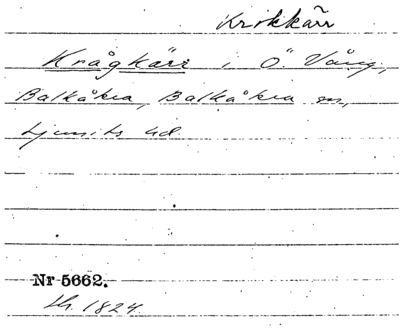 Krokkärr
Krågkärr i Ö. Vång,
Balkåkra, Balkåkra sn,
Ljunits hd.
Nr 5662.
1824.